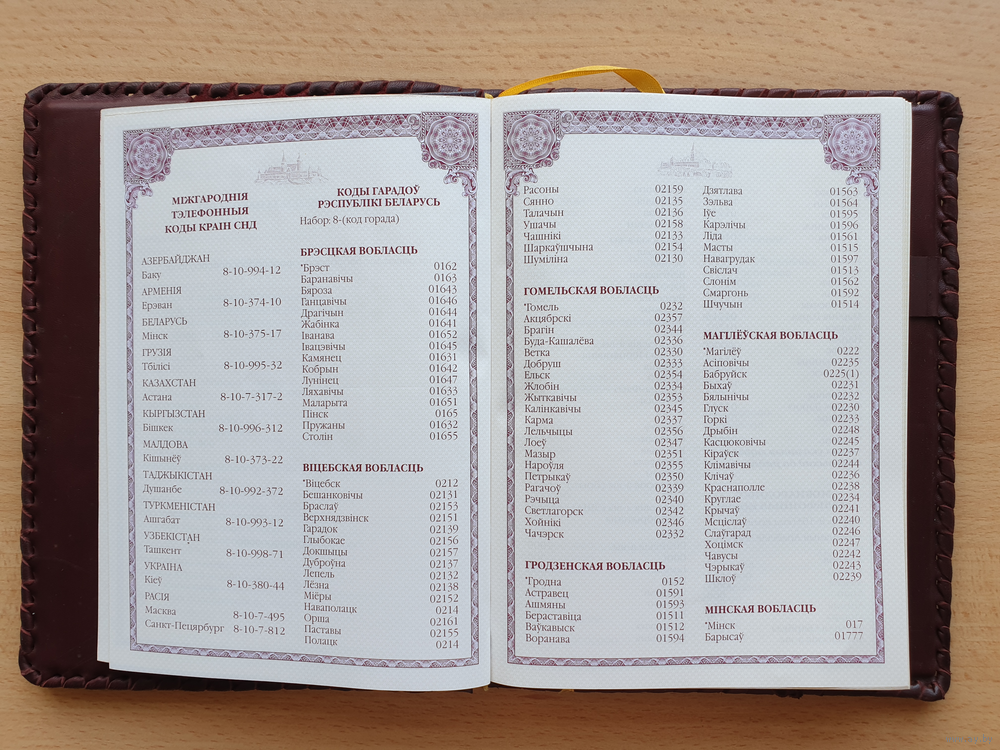 МІЖГАРОДНІЯ
ТЭЛЕФОННЫЯ
КОДЫ КРАІН СНД
АЗЕРБАЙДЖАН
Баку 8-10-994-12
АРМЕНІЯ
Ерэван 8-10-374-10
БЕЛАРУСЬ
Мінск 8-10-375-17
ГРУЗІЯ
Тбілісі 8-10-995-32
КАЗАХСТАН
Астана 8-10-7-317-2
КЫРГЫЗСТАН
Бішкек 8-10-996-312
МАЛДОВА
Кішынёў 8-10-373-22
ТАДЖЫКІСТАН
Душанбе 8-10-992-372
ТУРКМЕНІСТАН
Ашгабат 8-10-993-12
УЗБЕКІСТАН
Ташкент 8-10-998-71
УКРАІНА
Кіеў 8-10-380-44
РАСІЯ
Масква 8-10-7-495
Санкт-Пецярбург 8-10-7-812
КОДЫ ГАРАДОЎ
РЭСПУБЛІКІ БЕЛАРУСЬ
Набор: 8-(код горада)
БРЭСЦКАЯ ВОБЛАСЦЬ
*Брэст 0162
Баранавічы 0163
Бяроза 01643
Ганцавічы 01646
Драгічын 01644
Жабінка 01641
Іванава 01652
Івацэвічы 01645
Камянец 01631
Кобрын 01642
Лунінец 01647
Ляхавічы 01633
Маларыта 01651
Пінск 0165
Пружаны 01632
Столін 01655
ВІЦЕБСКАЯ ВОБЛАСЦЬ
*Віцебск 0212
Бешанковічы 02131
Браслаў 02153
Верхнядзвінск 02151
Гарадок 02139
Глыбокае 02156
Докшыцы 02157
Дуброўна 02137
Лепель 02132
Лёзна 02138
Міёры 02152
Наваполацк 0214
Орша 02161
Паставы 02155
Полацк 0214
Расоны 02159
Сянно 02135
Талачын 02136
Ушачы 02158
Чашнікі 02133
Шаркаўшчына 02154
Шуміліна 02130
ГОМЕЛЬСКАЯ ВОБЛАСЦЬ
*Гомель 0232
Акцябрскі 02357
Брагін 02344
Буда-Кашалёва 02336
Ветка 02330
Добруш 02333
Ельск 02354
Жлобін 02334
Жыткавічы 02353
Калінкавічы 02345
Карма 02337
Лельчыцы 02356
Лоеў 02347
Мазыр 02351
Нароўля 02355
Петрыкаў 02350
Рагачоў 02339
Рэчыца 02340
Светлагорск 02342
Хойнікі 02346
Чачэрск 02332
ГРОДЗЕНСКАЯ ВОБЛАСЦЬ
*Гродна 0152
Астравец 01591
Ашмяны 01593
Бераставіца 01511
Ваўкавыск 01512
Воранава 01594
Дзятлава 01563
Зэльва 01564
Іўе 01595
Карэлічы 01596
Ліда 01561
Масты 01515
Навагрудак 01597
Свіслач 01513
Слонім 01562
Смаргонь 01592
Шчучын 01514
МАГІЛЁЎСКАЯ ВОБЛАСЦЬ
*Магілёў 0222
Асіповічы 02235
Бабруйск 0225(1)
Быхаў 02231
Бялынічы 02232
Глуск 02230
Горкі 02233
Дрыбін 02248
Касцюковічы 02245
Кіраўск 02237
Клімавічы 02244
Клічаў 02236
Краснаполле 02238
Круглае 02234
Крычаў 02241
Мсціслаў 02240
Слаўгарад 02246
Хоцімск 02247
Чавусы 02242
Чэрыкаў 02243
Шклоў 02239
МІНСКАЯ ВОБЛАСЦЬ
*Мінск 017
Барысаў 01777